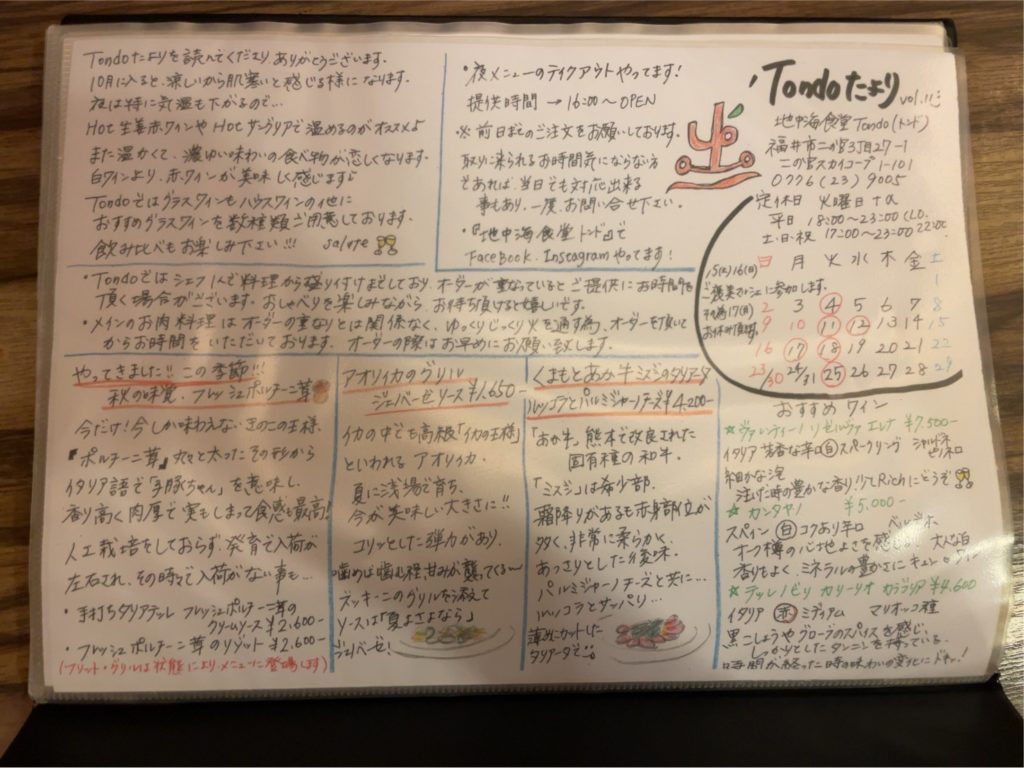 Tondoたよりを読んでくださり ありがとうございます。
10月に入ると、涼しいから肌寒いと感じる様になります。
夜は特に気温も下がるので…
Hot 生姜赤ワインや Hot サングリアで温めるのがオススメ♪
また温かくて、濃ゆい味わいの食べ物が恋しくなります。
白ワインより、赤ワインが美味しく感じます♪
Tondoではグラスワインも ハウスワインの他に
おすすめグラスワインを数種類ご用意しております。
飲み比べもお楽しみ下さい!!! salute
・夜メニューのテイクアウトやってます!
提供時間 → 16:00〜OPEN
※ 前日までのご注文をお願いしております。
取りに来られるお時間気にならない方
であれば、当日でも対応出来る
事もあり、一度、お問い合せ下さい。
・『地中海食堂トンド』で
FaceBook、Instagramやってます!
Tondoたより vol.
地中海食堂 Tondo(トンド)
福井市二の宮3丁目27-1
二の宮スカイコープ1-101
0776(23)9005
定休日 火曜日+α
平日 18:00〜23:00(L.O.
土・日・祝 17:00〜23:00 22:00)
15(土)16(日)
ご褒美マルシェに参加します。
その為17(月)
お休み頂きます。
日 月 火 水 木 金 土
1
2 3 4 5 6 7 8
9 10 11 12 13 14 15
16 17 18 19 20 21 22
23/30 24/31 25 26 27 28 29
・Tondoではシェフ1人で料理から盛り付けまでしており、オーダーが重なっているとご提供にお時間を
頂く場合がございます。おしゃべりを楽しみながら、お待ち頂けると嬉しいです。
・メインのお肉料理はオーダーの重なりとは関係なく、ゆっくりじっくり火を通す為、オーダーを頂いて
からお時間をいただいております。オーダーの際はお早めにお願い致します。
やってきました!! この季節!!!
秋の味覚、フレッシュポルチーニ茸
今だけ! 今しか味わえない きのこの王様。
『ポルチーニ茸』丸々と太ったその形から
イタリア語で「子豚ちゃん」を意味し、
香り高く肉厚で実もしまって食感も最高!
人工栽培をしておらず、発育で入荷が
左右され、その時々で入荷がない事も…
・手打ちタリアテッレ フレッシュポルチーニ茸の
クリームソース ¥2,600-
・フレッシュポルチーニ茸のリゾット ¥2,600-
(フリット・グリルは状態によりメニューに登場します)
アオリイカのグリル
ジェノベーゼソース ¥1,650-
イカの中でも高級「イカの王様」
といわれる アオリイカ。
夏に浅場で育ち、
今が美味しい大きさに!!
コリッとした弾力があり、
噛めば噛む程、甘みが襲ってくる〜
ズッキーニのグリルを添えて
ソースは「夏よさよなら」
ジェノベーゼ!
くまもとあか牛ミスジのタリアータ
ルッコラとパルミジャーノチーズ ¥4,200-
「あか牛」熊本で改良された
固有種の和牛。
「ミスジ」は希少部。
霜降りがある赤身部位が
多く、非常に柔らかく、
あっさりとした後味。
パルミジャーノチーズと共に…
ルッコラとサッパリ…
薄めにカットした
タリアータで
おすすめワイン
★ヴァレンティーノ リゼルヴァ エレナ ¥7,500-
イタリア 芳香な辛口 白 スパークリング シャルドネ
ピノネロ
細かな泡
注げた時の豊かな香り!少しRichにどうぞ
★カンタヤノ ¥5,000-
スペイン 白 コクあり辛口 ベルデホ
オーク樽の心地よさを感じ 大人な白
香りもよく ミネラルの豊かさに キュンなワイン
★テッレノビリ カリーリオ カラブリア ¥4,600
イタリア 赤 ミディアム マリオッコ種
黒こしょうやクローブのスパイスを感じ、
しっかりとしたタンニンを持っている。
時間が経った時の味わいの変化にドキッ!